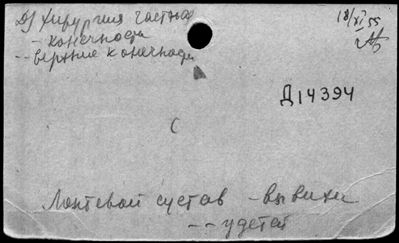 Д) Хирургия частная
- конечности
-- верхние конечности
18/XI 55
Д14394
Локтевой сустав - вывихи
-- у детей